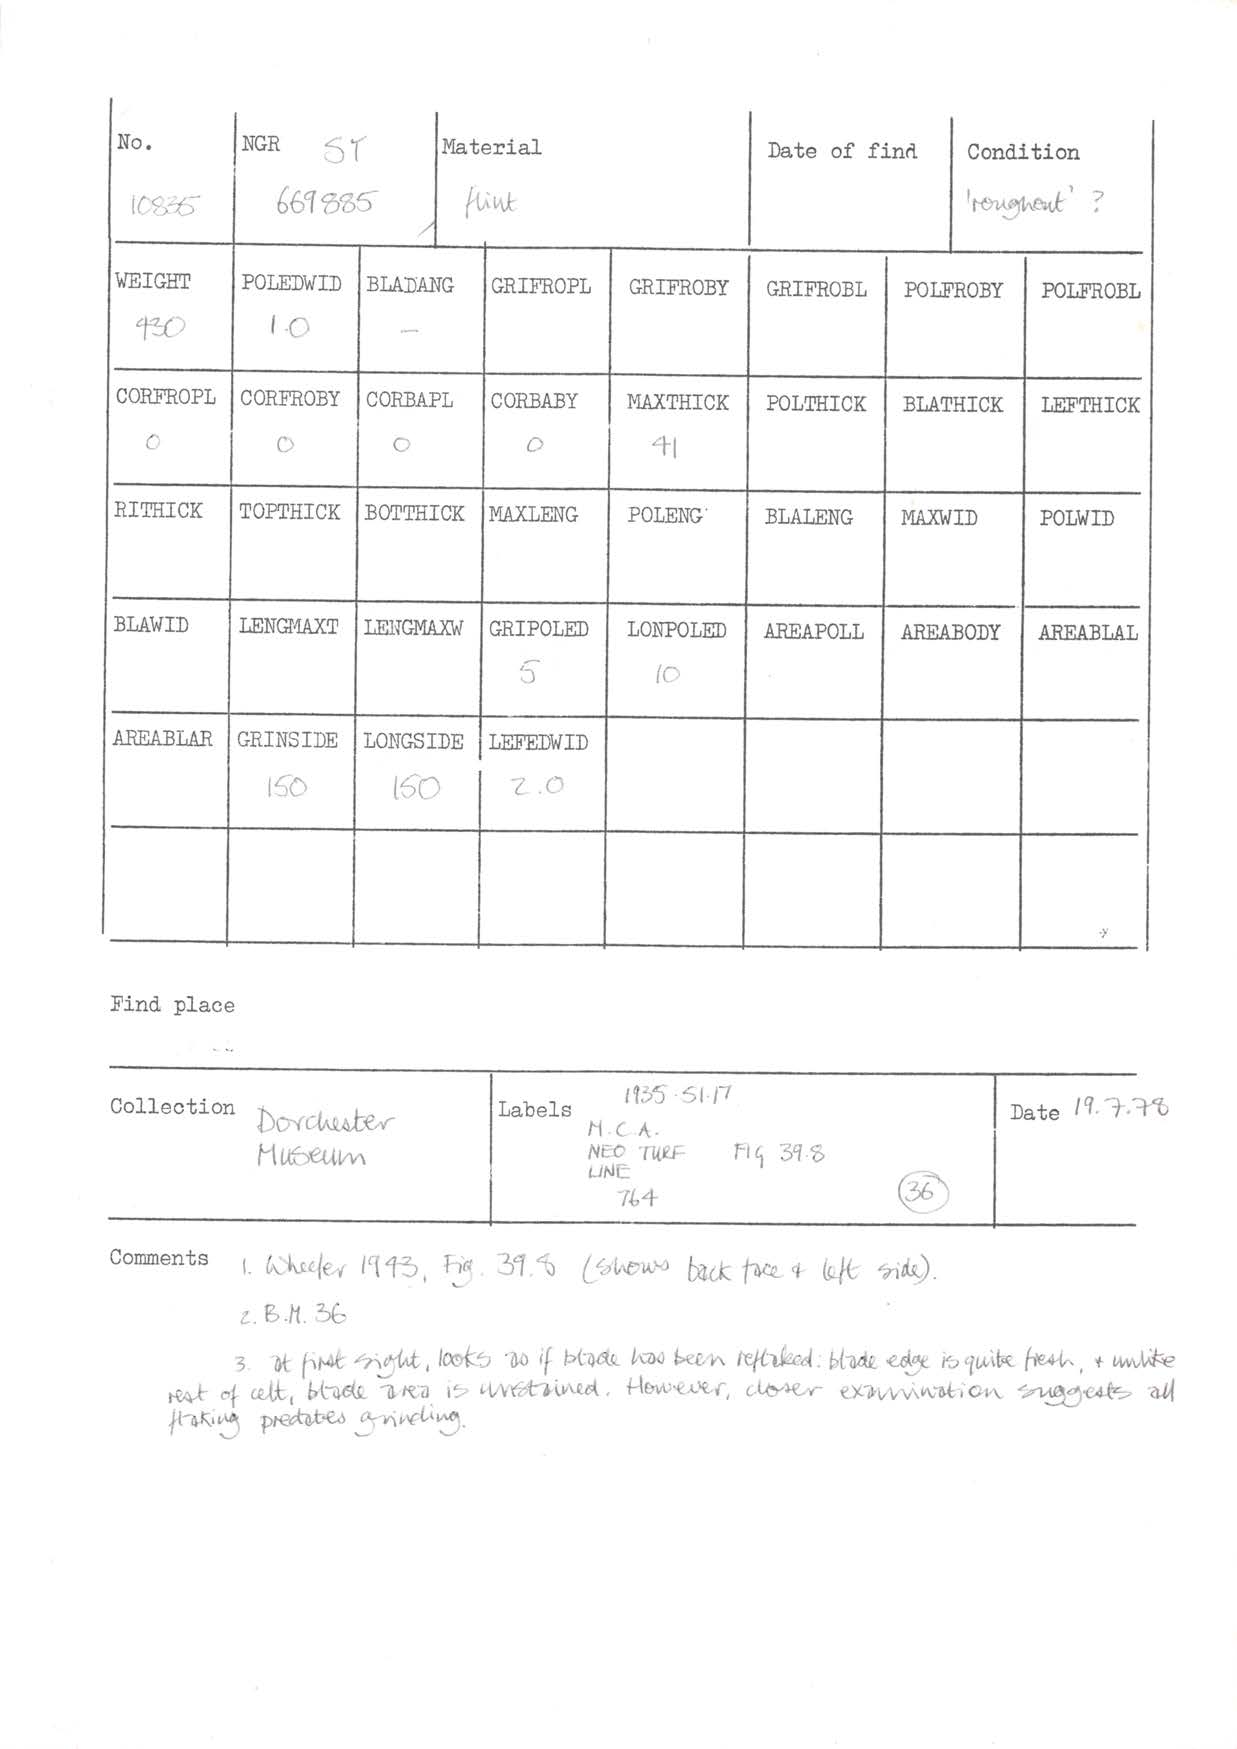 No. NGR ST Material Date of find Condition
10835 669885 flint 'roughout' ?
WEIGHT POLEDWID BLADANG GRIFROPL GRIFROBY GRIFROBL POLFROBY POLFROBL
430 1.0 —
CORFROPL CORFROBY CORBAPL CORBABY MAXTHICK POLTHICK BLATHICK LEFTHICK
0 0 0 0 41
RITHICK TOPTHICK BOTTHICK MAXLENG POLENG BLALENG MAXWID POLWID
BLAWID LENGMAXT LENGMAXW GRIPOLED LONPOLED AREAPOLL AREABODY AREABLAL
5 10
AREABLAR GRINSIDE LONGSIDE LEFEDWID
150 150 2.0
Find place
Collection Dorchester
Museum
Labels 1935.51.17
M.C.A.
NEO TURF FIG 39.8
LINE
764 36
Date 19.7.78
Comments 1. Wheeler 1943, Fig. 39.8 (shows back face + left side).
2. B.M. 36
3. at first sight, looks as if blade has been reflaked: blade edge is quite fresh, + unlike
rest of celt, blade area is unstained. However, closer examination suggests all
flaking predates grinding.